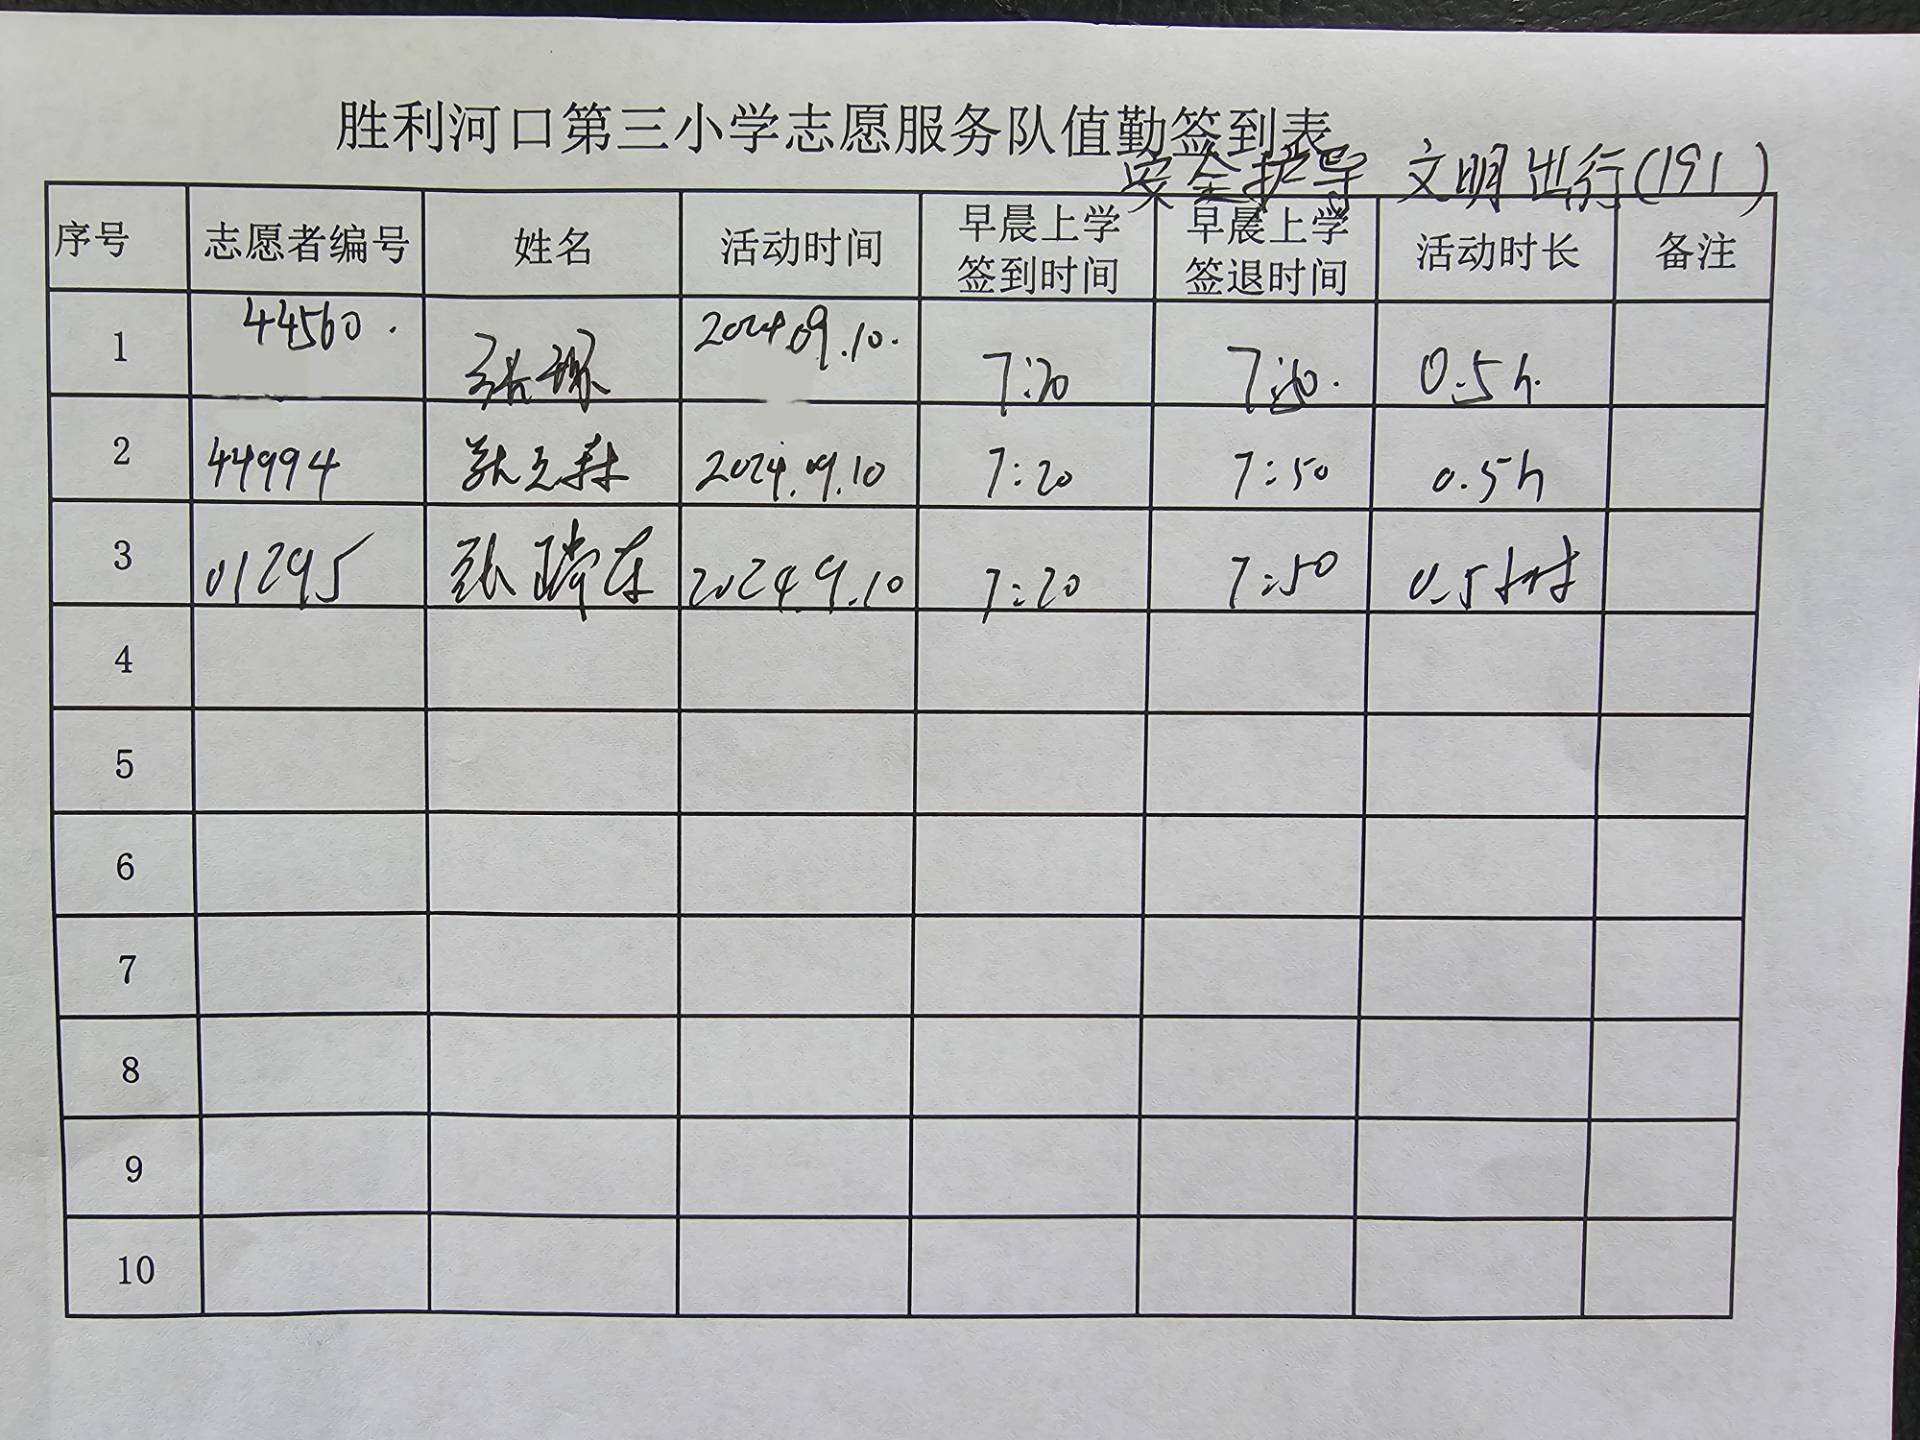 胜利河口第三小学志愿服务队值勤签到表
安全护导 文明出行(191)
序号 志愿者编号 姓名 活动时间 早晨上学签到时间 早晨上学签退时间 活动时长 备注
1 44560. 2024.09.10. 7:20 7:50. 0.5h.
2 44994 2024.09.10 7:20 7:50 0.5h
3 01295 张瑞东 2024.9.10 7:20 7:50 0.5小时
4
5
6
7
8
9
10